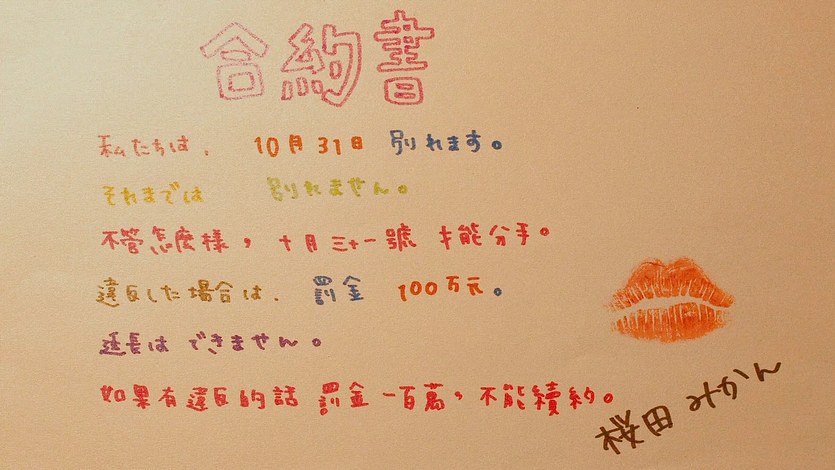 合約書
私たちは、 10月31日 別れます。
それまでは 別れません。
不管怎麼樣，十月三十一號 才能分手。
違反した場合は、罰金 100万元。
延長は できません。
如果有違反的話 罰金一百萬，不能續約。
桜田みかん